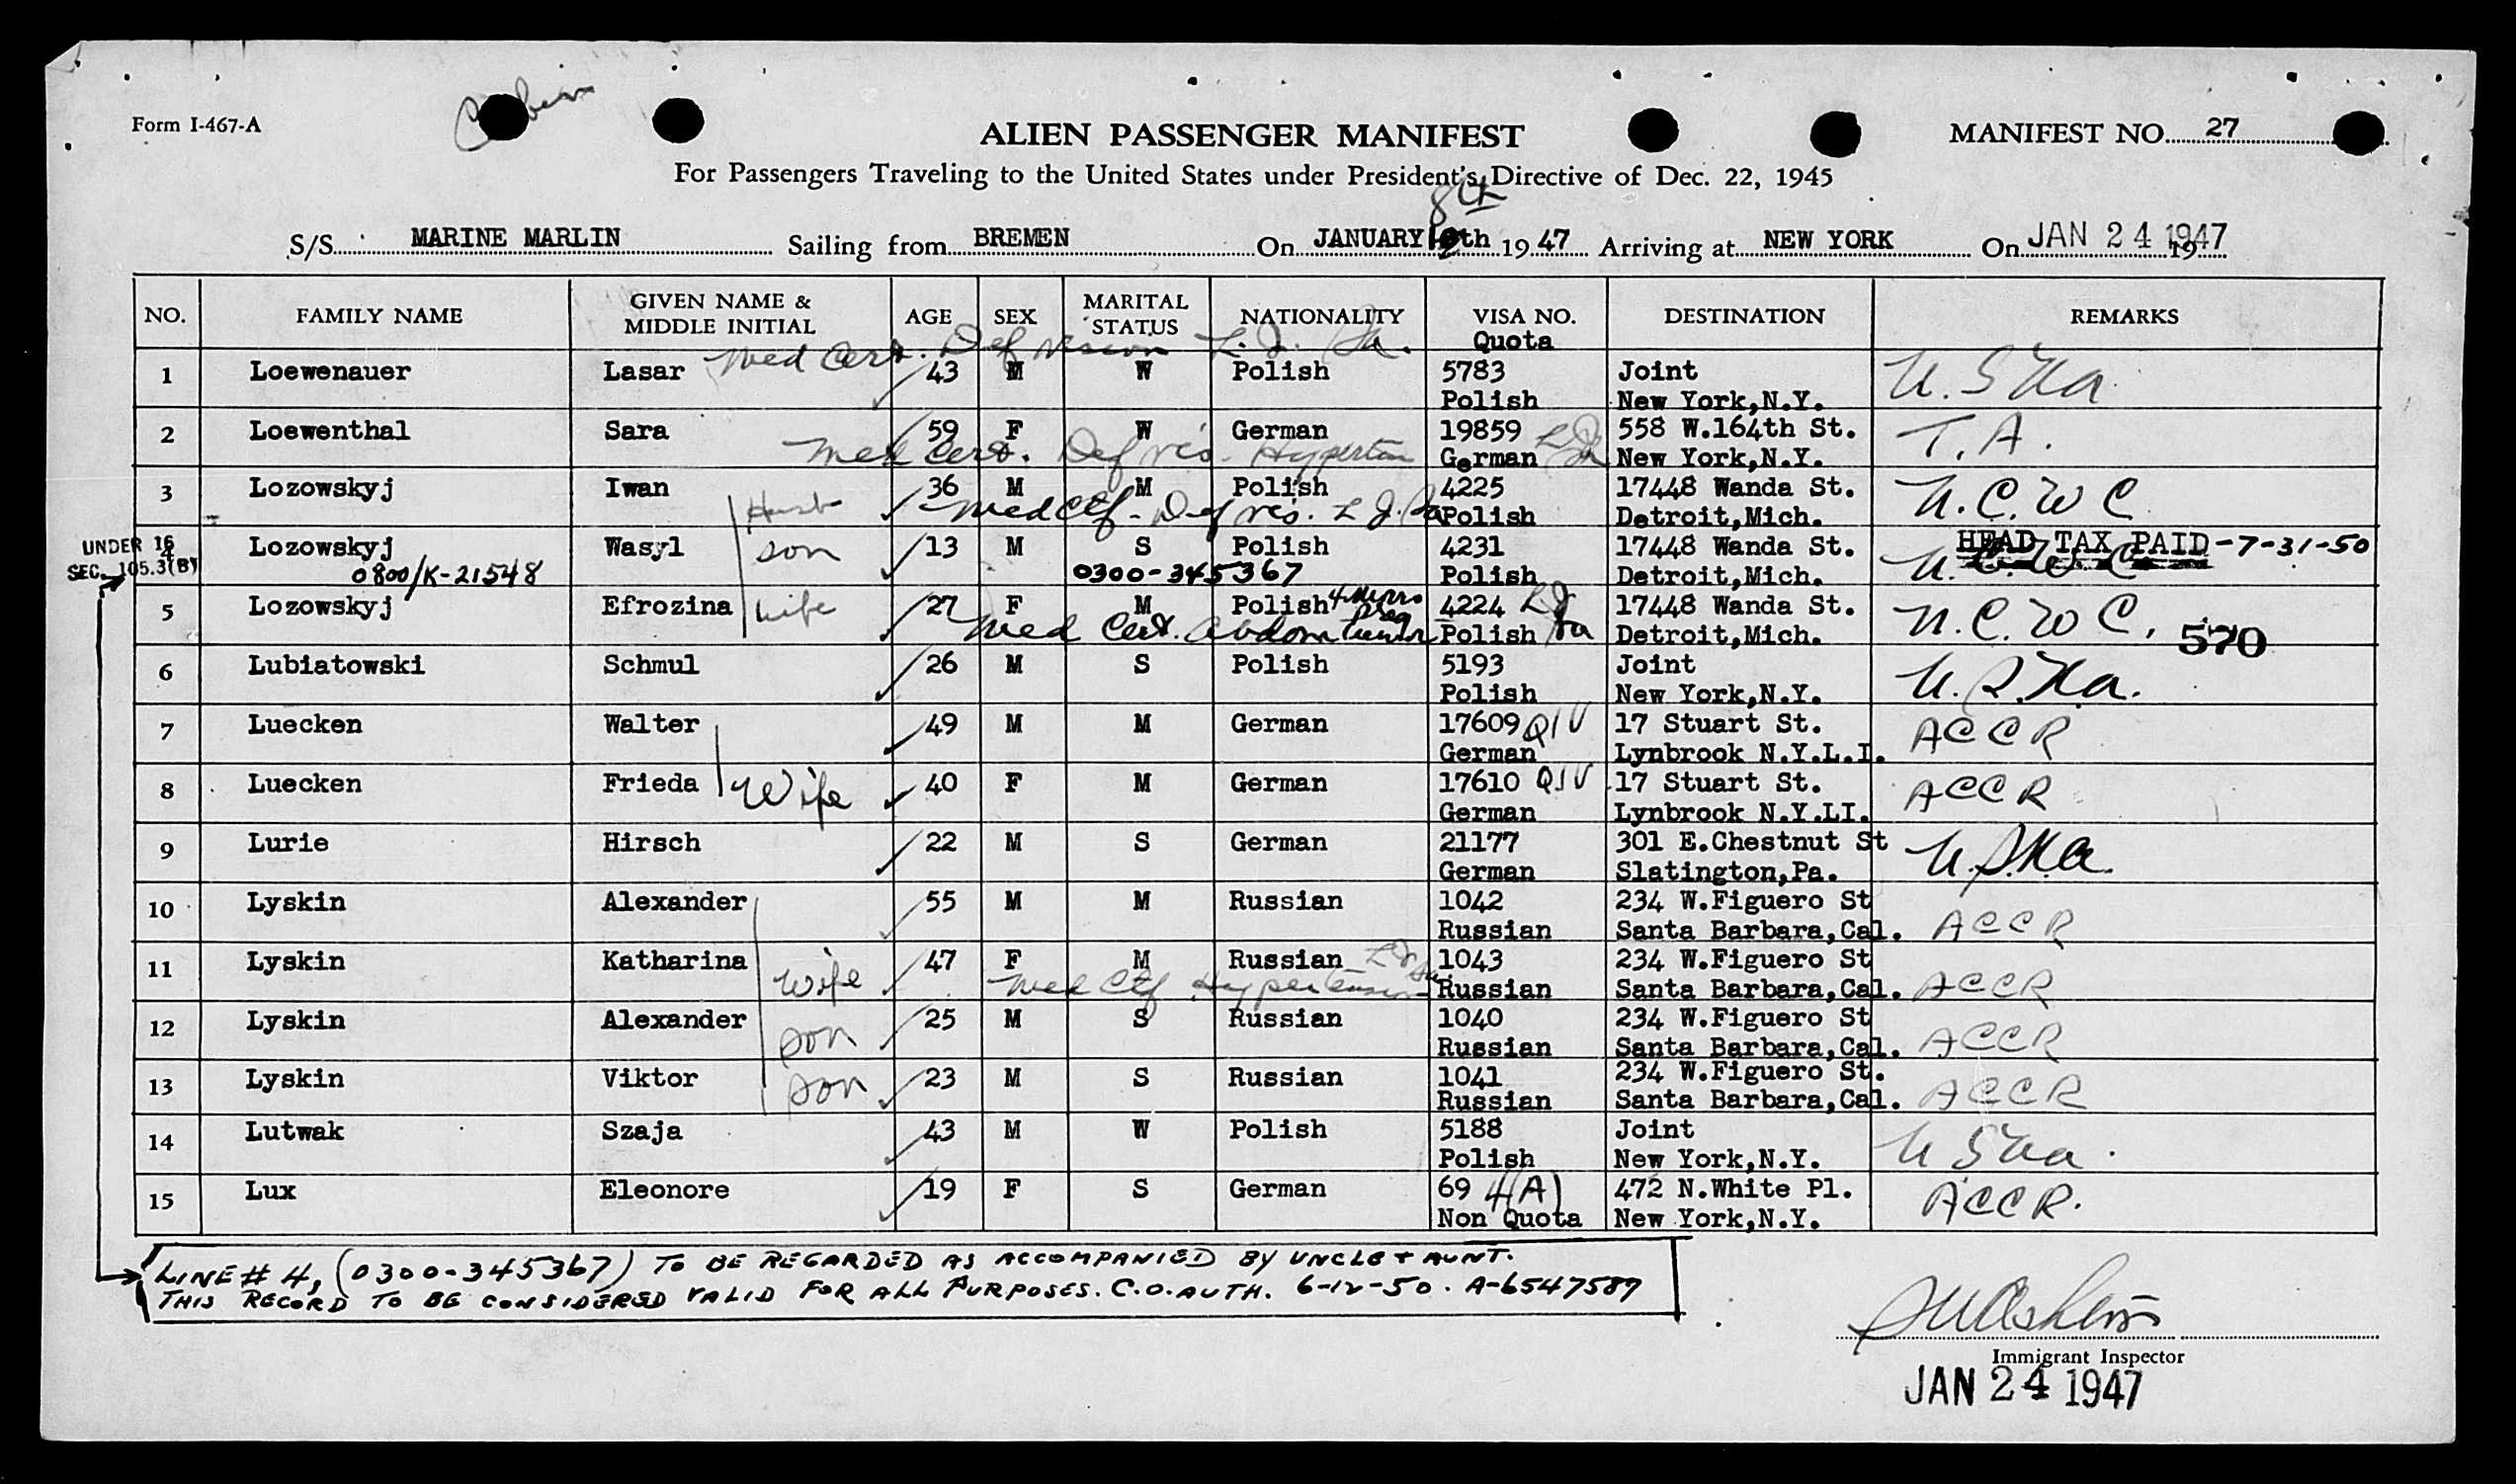 Form I-467-A
ALIEN PASSENGER MANIFEST
MANIFEST NO. 27
For Passengers Traveling to the United States under President's Directive of Dec. 22, 1945
8th
S/S MARINE MARLIN Sailing from BREMEN On JANUARY th 19 47 Arriving at NEW YORK On JAN 24 1947 19
NO. FAMILY NAME GIVEN NAME & MIDDLE INITIAL AGE SEX MARITAL STATUS NATIONALITY VISA NO. Quota DESTINATION REMARKS
Med Cert. Def vision
1 Loewenauer Lasar 43 M W Polish 5783 Joint
Polish New York,N.Y.
2 Loewenthal Sara 59 F W German 19859 558 W.164th St. T.A.
Med Cert. Def vis. Hyperten German New York,N.Y.
3 Lozowskyj Iwan Husb 36 M M Polish 4225 17448 Wanda St. N.C.W.C
Med Ctf - Def vis. Polish Detroit,Mich.
UNDER 16
SEC. 105.3(B)
4 Lozowskyj Wasyl son 13 M S Polish 4231 17448 Wanda St. HEAD TAX PAID-7-31-50
0800/K-21548 0300-345367 Polish Detroit,Mich. N.C.W.C
5 Lozowskyj Efrozina wife 27 F M Polish 4224 17448 Wanda St. N.C.W C.
Med Cert. Abdom tumor Polish Detroit,Mich. 570
6 Lubiatowski Schmul 26 M S Polish 5193 Joint
Polish New York,N.Y.
7 Luecken Walter 49 M M German 17609 QIV 17 Stuart St. ACCR
German Lynbrook N.Y.L.I.
8 Luecken Frieda Wife 40 F M German 17610 QIV 17 Stuart St. ACCR
German Lynbrook N.Y.LI.
9 Lurie Hirsch 22 M S German 21177 301 E.Chestnut St
German Slatington,Pa.
10 Lyskin Alexander 55 M M Russian 1042 234 W.Figuero St
Russian Santa Barbara,Cal. ACCR
11 Lyskin Katharina wife 47 F M Russian 1043 234 W.Figuero St
Med Ctf Hypertension Russian Santa Barbara,Cal. ACCR
12 Lyskin Alexander son 25 M S Russian 1040 234 W.Figuero St
Russian Santa Barbara,Cal. ACCR
13 Lyskin Viktor son 23 M S Russian 1041 234 W.Figuero St.
Russian Santa Barbara,Cal. ACCR
14 Lutwak Szaja 43 M W Polish 5188 Joint
Polish New York,N.Y.
15 Lux Eleonore 19 F S German 69 4(A) 472 N.White Pl. ACCR.
Non Quota New York,N.Y.
LINE # 4, (0300-345367) TO BE REGARDED AS ACCOMPANIED BY UNCLE + AUNT.
THIS RECORD TO BE CONSIDERED VALID FOR ALL PURPOSES. C.O. AUTH. 6-12-50. A-6547587
Immigrant Inspector
JAN 24 1947